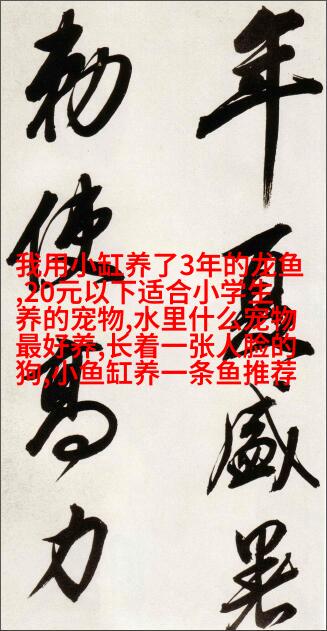 年夏盛暑
勅使高力
我用小缸养了3年的龙鱼
,20元以下适合小学生
养的宠物,水里什么宠物
最好养,长着一张人脸的
狗,小鱼缸养一条鱼推荐